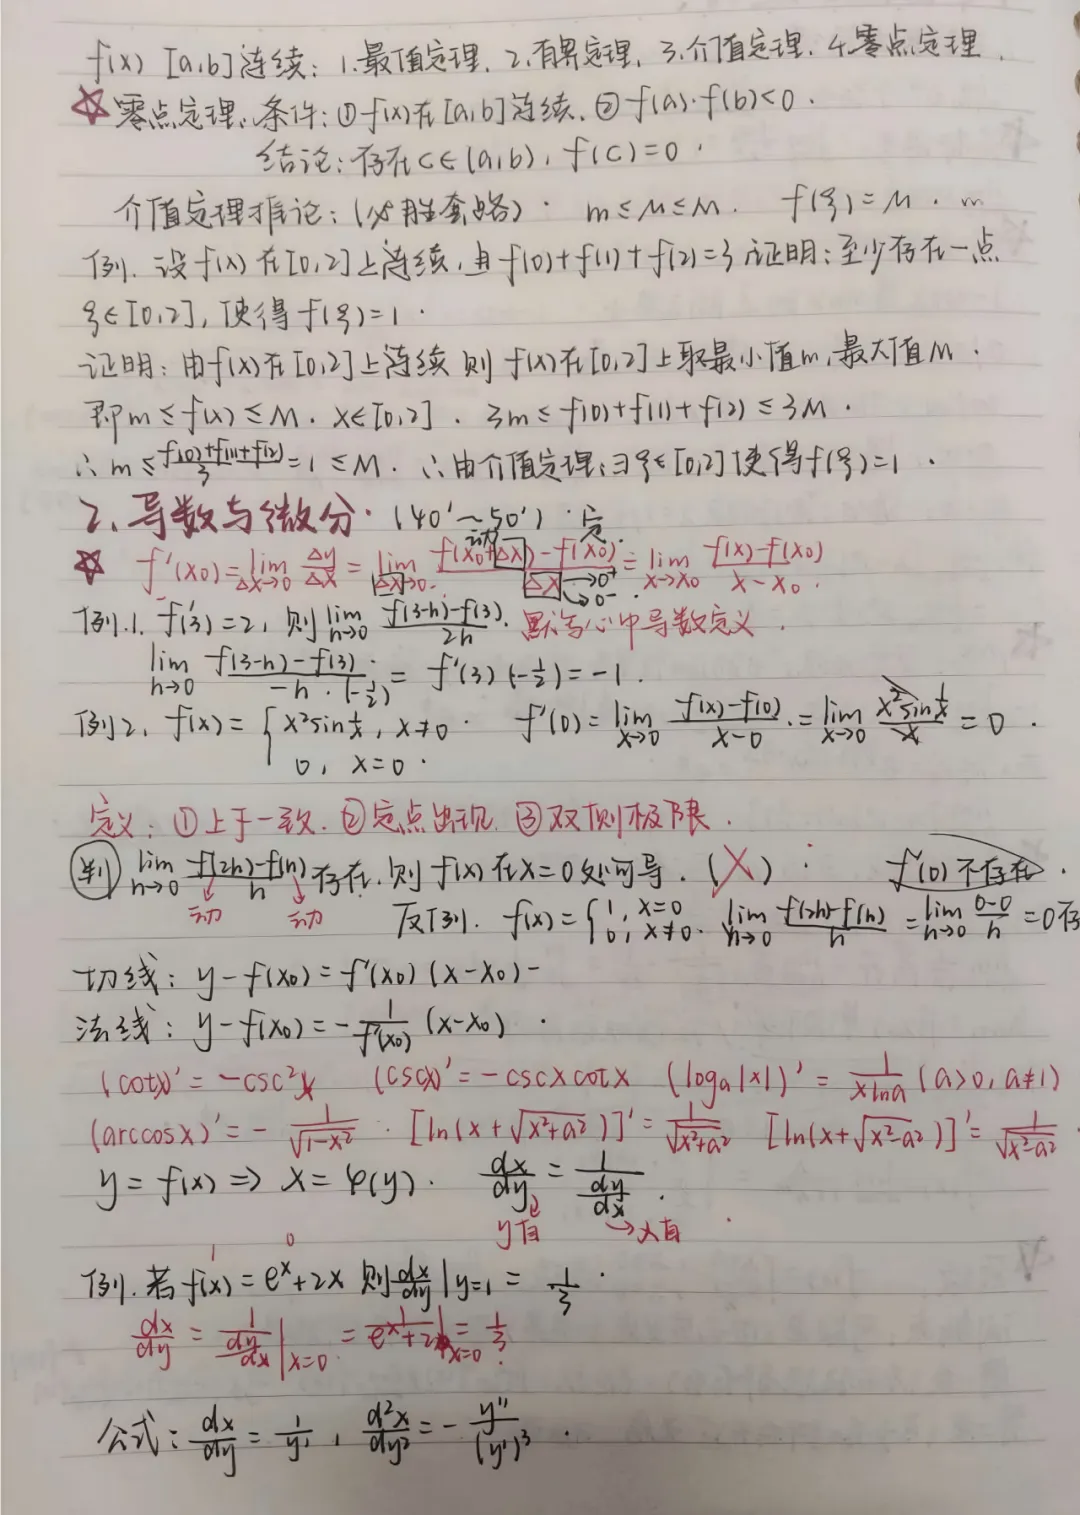 f(x) [a,b]连续: 1.最值定理. 2.有界定理, 3.介值定理. 4.零点定理.
☆零点定理. 条件: ①f(x)在[a,b]连续. ②f(a)·f(b)<0.
结论: 存在c∈(a,b), f(c)=0.
介值定理推论: (必胜套路). m≤M≤M. f(ξ)=M. m
例. 设f(x)在[0,2]上连续, 且f(0)+f(1)+f(2)=3 证明: 至少存在一点
ξ∈[0,2], 使得f(ξ)=1.
证明: 由f(x)在[0,2]上连续 则f(x)在[0,2]上取最小值m, 最大值M.
即m≤f(x)≤M. x∈[0,2]. 3m≤f(0)+f(1)+f(2)≤3M.
∴ m≤(f(0)+f(1)+f(2))/3=1≤M. ∴由介值定理: ∃ξ∈[0,2]使得f(ξ)=1.
2. 导数与微分. (40'~50').
☆ f'(x₀)=lim Δx→0 Δy/Δx = lim Δx→0 (f(x₀+Δx)-f(x₀))/Δx = lim x→x₀ (f(x)-f(x₀))/(x-x₀).
动 定 →0⁺ →0⁻.
例.1. f'(3)=2, 则lim h→0 (f(3-h)-f(3))/2h. 默写心中导数定义.
lim h→0 (f(3-h)-f(3))/-h·(-1/2) = f'(3)(-1/2)=-1.
例2. f(x)={x²sin1/x, x≠0. f'(0)=lim x→0 (f(x)-f(0))/(x-0).=lim x→0 (x²sin1/x)/x=0.
0, x=0.
定义: ①上下一致. ②定点出现. ③双侧极限.
判 lim h→0 (f(2h)-f(h))/h 存在. 则f(x)在x=0处可导. (X) f'(0)不存在.
动 动 反例. f(x)={1, x=0 0, x≠0. lim h→0 (f(2h)-f(h))/h =lim h→0 (0-0)/h =0存
切线: y-f(x₀)=f'(x₀)(x-x₀)-
法线: y-f(x₀)=-1/f'(x₀) (x-x₀).
(cotx)'=-csc²x (cscx)'=-cscxcotx (logₐ|x|)'=1/(xlna) (a>0, a≠1)
(arccosx)'=-1/√(1-x²). [ln(x+√(x²+a²))]'=1/√(x²+a²) [ln(x+√(x²-a²))]'=1/√(x²-a²)
y=f(x)⇒x=φ(y). dx/dy=1/(dy/dx).
y自 →x自
1 0
例. 若f(x)=eˣ+2x 则dx/dy|y=1 = 1/3.
dx/dy=1/(dy/dx)|x=0 =1/(eˣ+2)|x=0=1/3.
公式: dx/dy=1/y', d²x/dy²=-y''/(y')³.